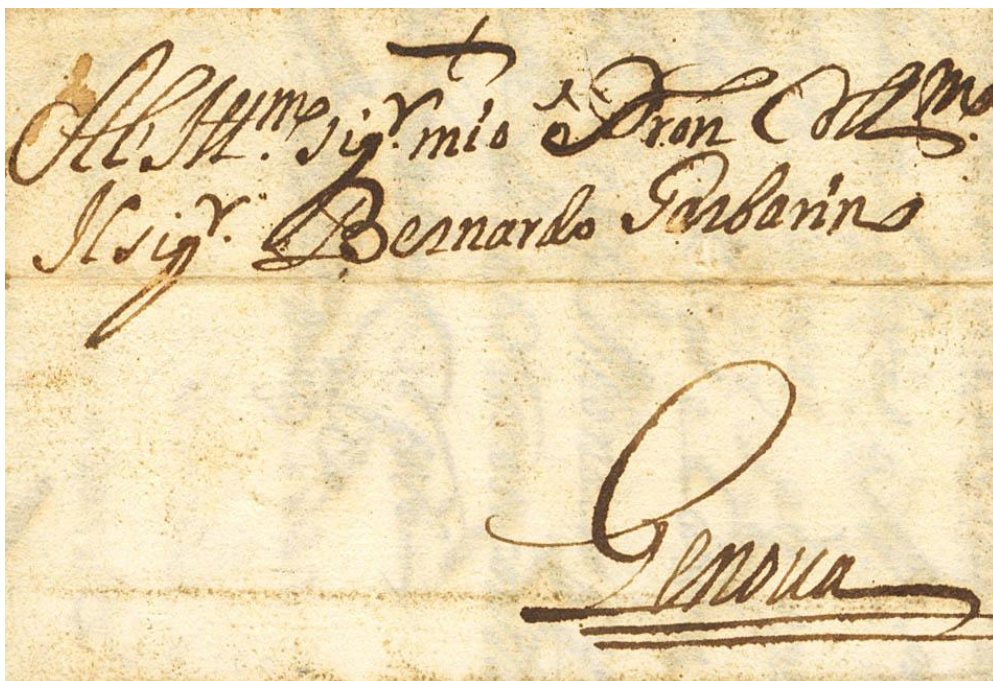 All Ill.mo sig.r mio e Pron Coll.mo
Il sig.r Bernardo Garbarino
Genoua